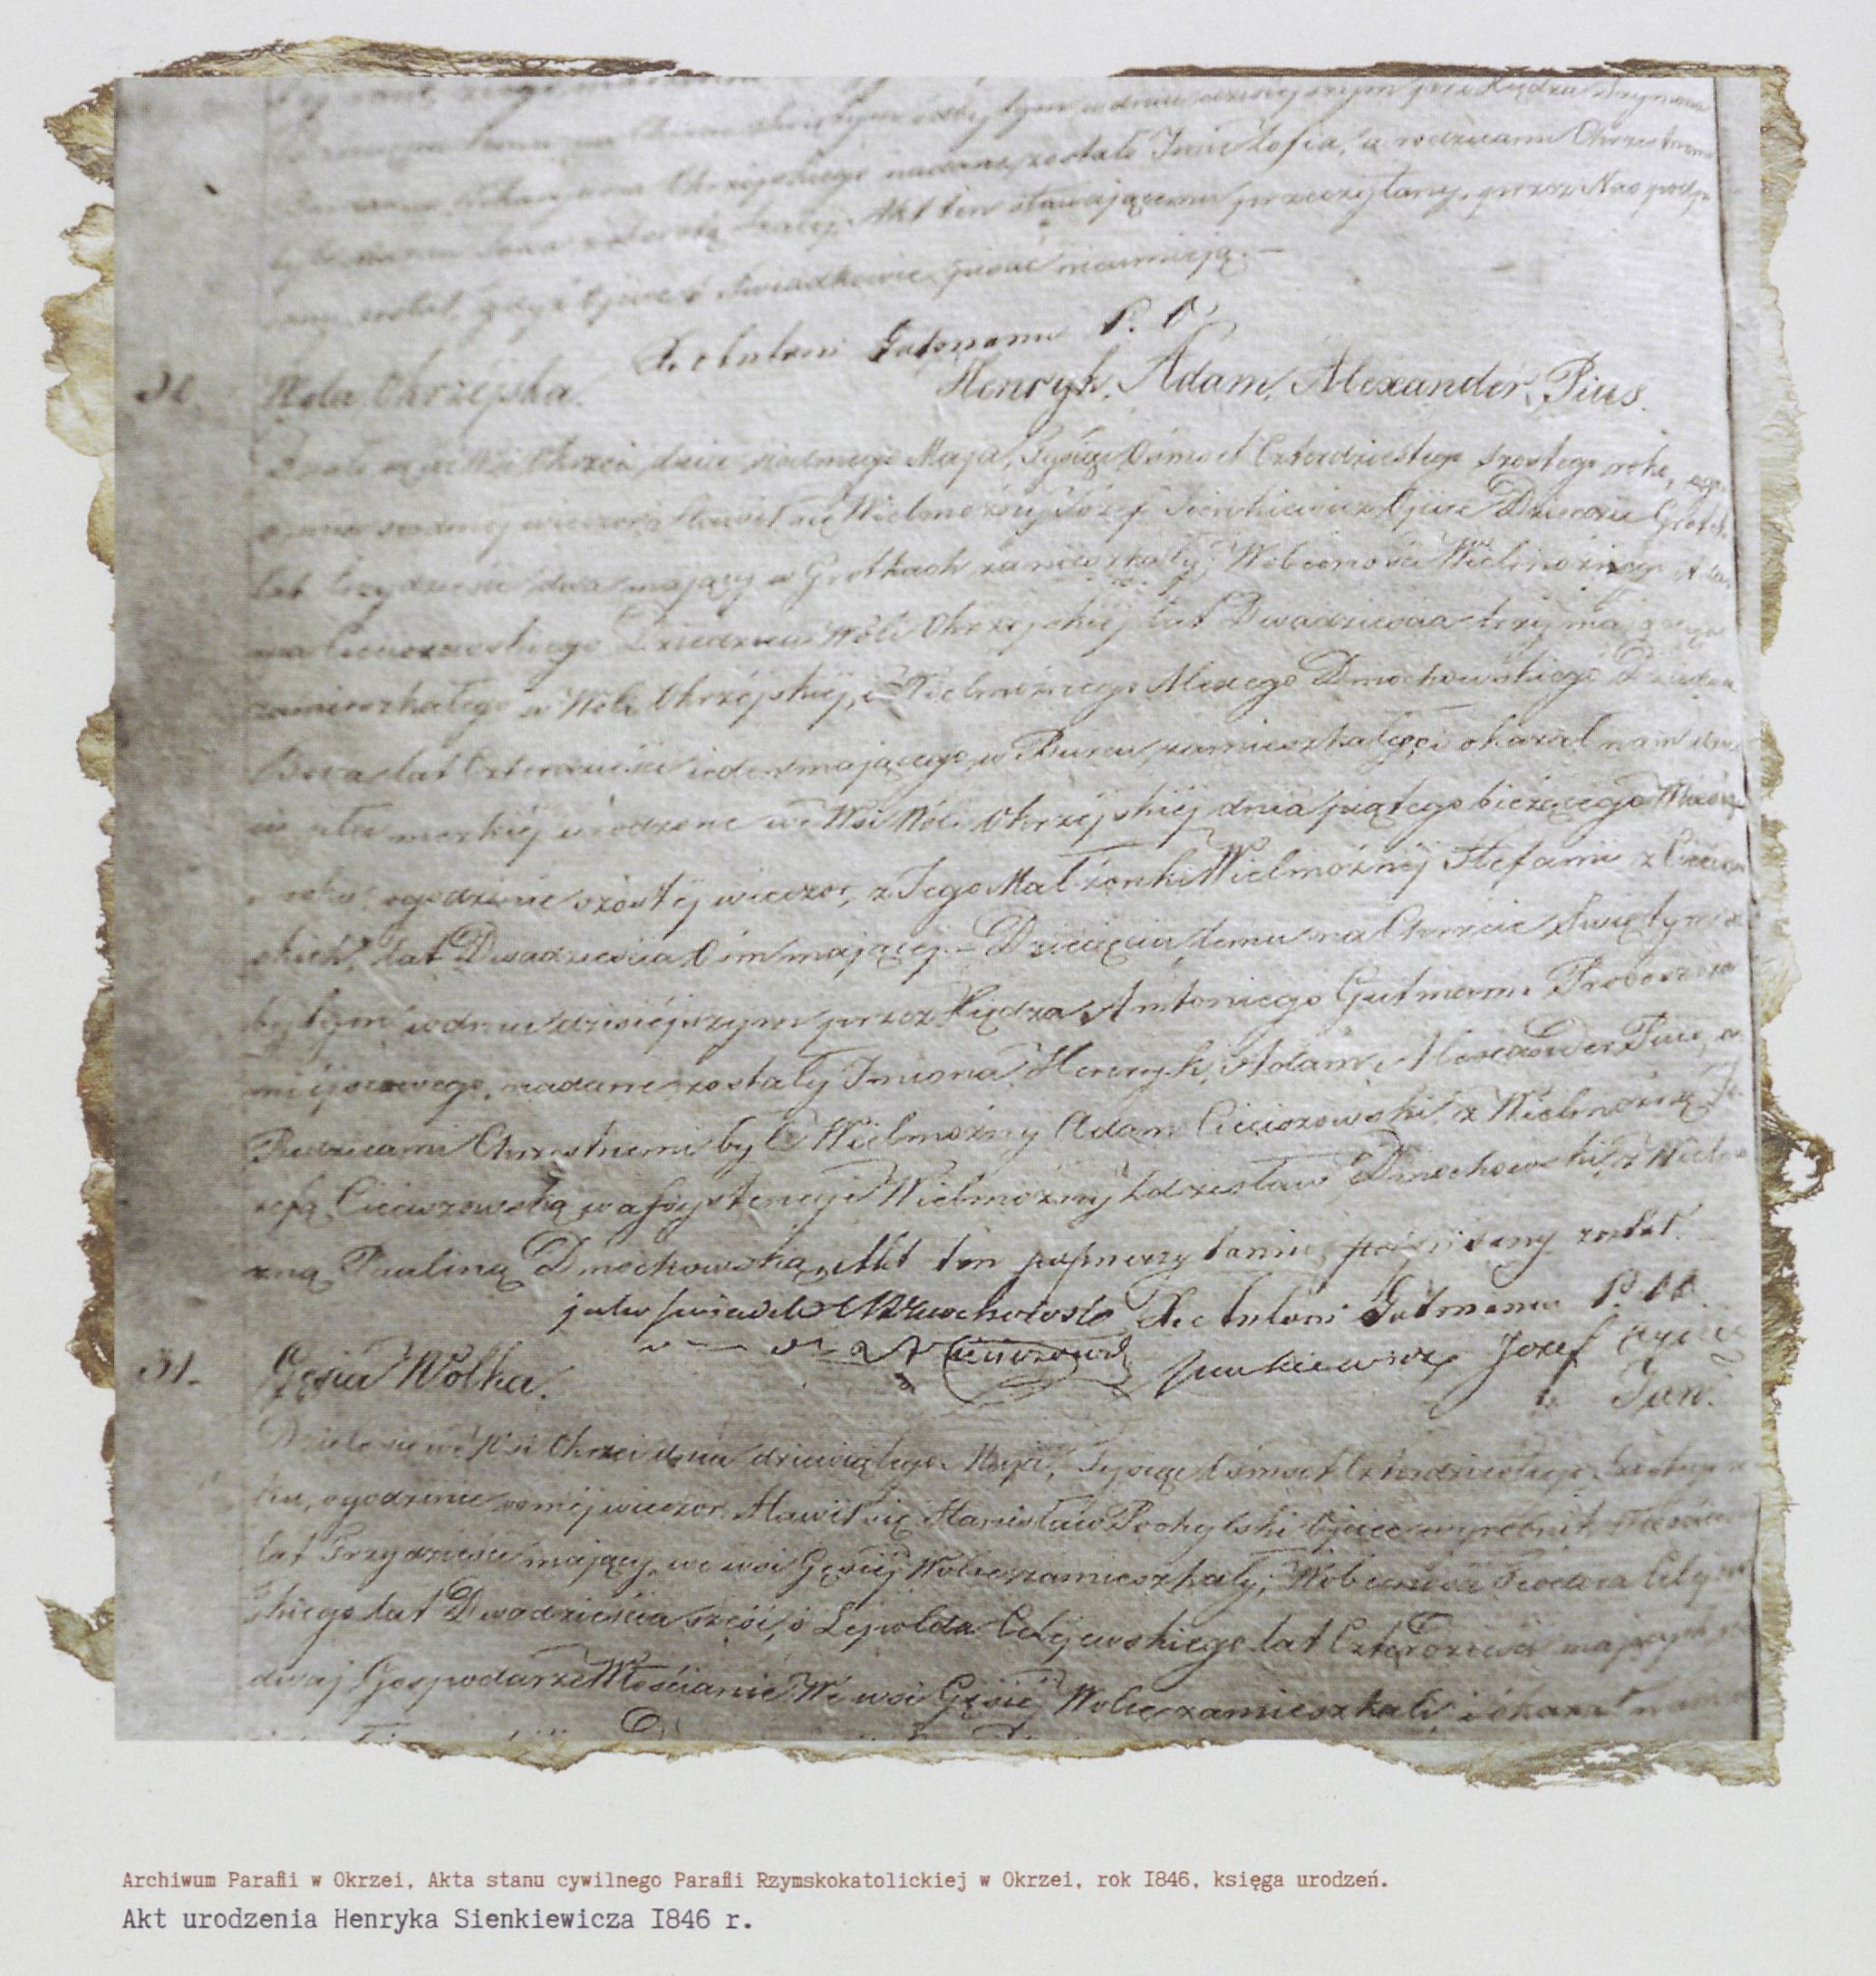 nadane zostało Imie Zofia, a rodzicami Chrzestnemi
Akt ten stawającemu przeczytany, przez Nas podpi
sany został, gdyż Ojciec i Swiadkowie pisać nieumieją.—
X. Antoni Gutmann P. O.
30. Wola Okrzejska. Henryk, Adam, Alexander, Pius.
Działo się we Wsi Okrzei dnia siodmego Maja, Tysiąc Ośmset Czterdziestego szostego roku, ogo
siodmej wieczor, Stawił się Wielmożny Józef Sienkiewicz Ojciec Dziedzic Grotek
lat trzydzieści dwa mający w Grotkach zamieszkały, Wobecności Wielmożnego Ada
ma Cieciszowskiego Dziedzica Woli Okrzejskiej lat Dwadzieścia trzy mającego
zamieszkałego w Woli Okrzejskiej, i Wielmożnego Alexego Dmochowskiego Dziedzica
lat Czterdzieści ieden mającego, w Burcu zamieszkałego i okazał nam dziec
ie płci mezkiej urodzone we Wsi Woli Okrzejskiej dnia piątego bieżącego Miesią
i roku, ogodzinie szostej wieczor, z Jego Małżonki Wielmożnej Stefanii z Ciecisz
skich, lat Dwadzieścia Ośm mającej.— Dziecięciu temu na Chrzcie Swiętym od
bytym w dniu dzisiejszym przez Xiędza Antoniego Gutmann Proboszcza
miejscowego, nadane zostały Imiona Henryk, Adam, Alexander Pius, a
Rodzicami Chrzestnemi byli Wielmożny Adam Cieciszowski z Wielmożną Jó
zefą Cieciszowską, w assystencyi Wielmożny Zdzisław Dmochowski, z Wielmo
żną Pauliną Dmochowską, Akt ten poprzeczytaniu podpisany został.
jako swiadek ADmochowski X. Antoni Gutmann P. O.
A Cieciszowski Sienkiewicz Jozef Ojciec
31. Gęsia Wolka. Jan.
Działo się we Wsi Okrzei dnia dziewiątego Maja, Tysiąc Ośmset Czterdziestego Szostego ro
ku, ogodzinie osmej wieczor. Stawił się Stanisław Pochylski Ojciec wyrobnik
lat Trzydzieści mający, we wsi Gęsiej Wolce zamieszkały, Wobecności
skiego lat Dwadzieścia sześć, i Lejpolda Celejewskiego lat Czterdzieści mających
dwaj Gospodarze Włościanie We wsi Gęsiej Wolce zamieszkali, i okazał nam
Archiwum Parafii w Okrzei, Akta stanu cywilnego Parafii Rzymskokatolickiej w Okrzei, rok I846, księga urodzeń.
Akt urodzenia Henryka Sienkiewicza I846 r.